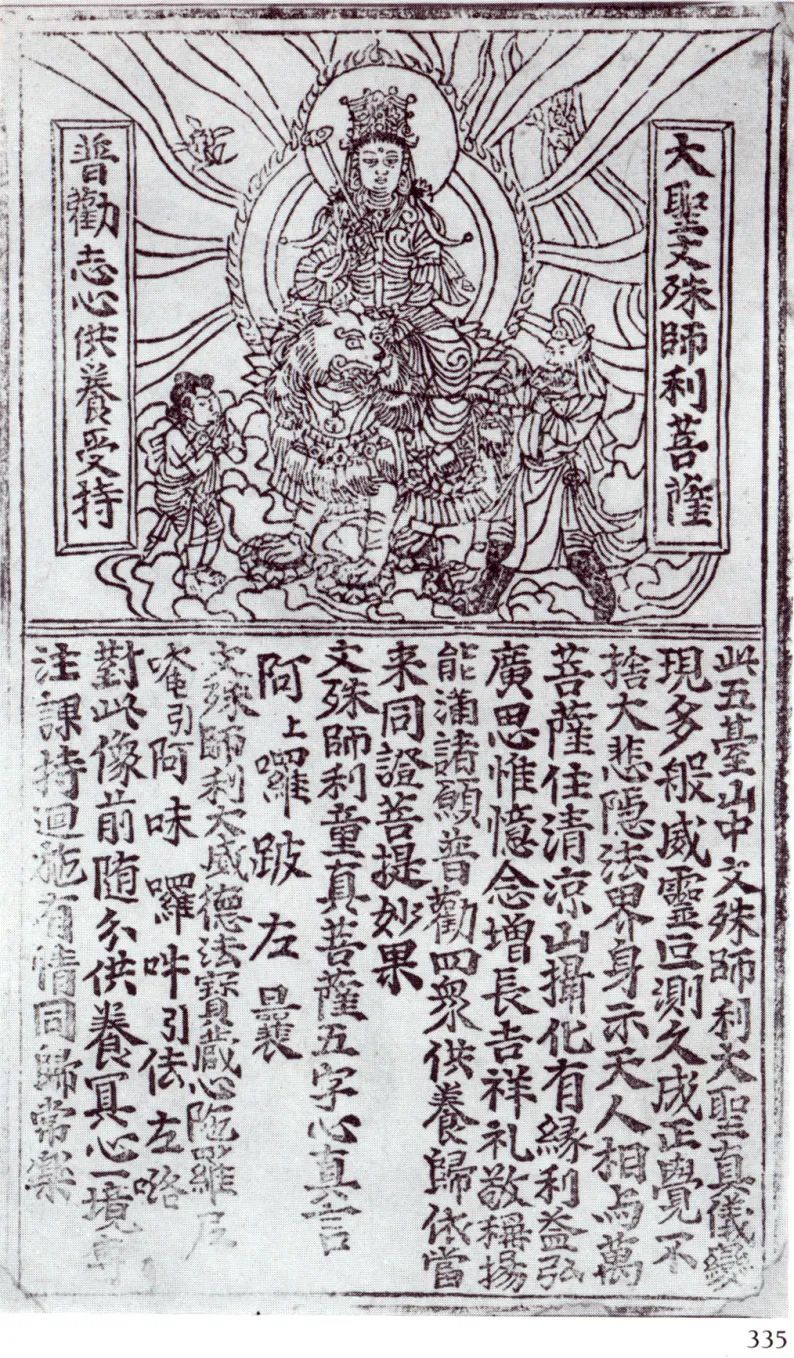 大聖文殊師利菩薩
普勸志心供養受持
此五臺山中文殊師利大聖真儀變
現多般威靈叵測久成正覺不
捨大悲隱法界身示天人相与萬
菩薩住清涼山攝化有緣利益弘
廣思惟憶念增長吉祥礼敬稱揚
能滿諸願普勸四衆供養歸依當
来同證菩提妙果
文殊師利童真菩薩五字心真言
阿上囉跛左曩
文殊師利大威德法寶藏心陁羅尼
唵引阿味囉吽引佉左
對此像前随分供養冥心一境專
注課持迴施有情同歸常樂
335